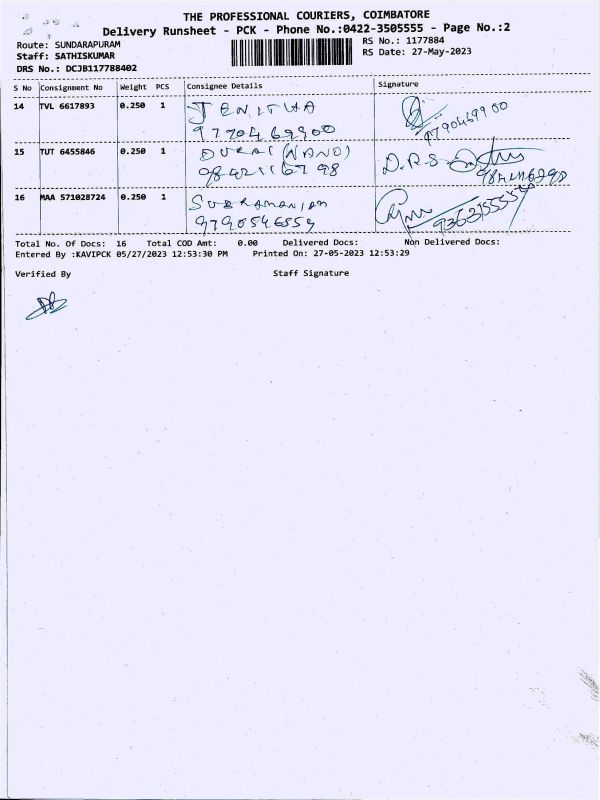 THE PROFESSIONAL COURIERS, COIMBATORE
Delivery Runsheet - PCK - Phone No.:0422-3505555 - Page No.:2
Route: SUNDARAPURAM
Staff: SATHISKUMAR
DRS No.: DCJB117788402
RS No.: 1177884
RS Date: 27-May-2023
S No Consignment No Weight PCS Consignee Details Signature
14 TVL 6617893 0.250 1 JENITHA
9770469900
15 TUT 6455846 0.250 1 DURAI (NAND)
D.R.S
16 MAA 571028724 0.250 1 SUBRAMANIAN
9790546554
Total No. Of Docs: 16 Total COD Amt: 0.00 Delivered Docs: Non Delivered Docs:
Entered By :KAVIPCK 05/27/2023 12:53:30 PM Printed On: 27-05-2023 12:53:29
Verified By Staff Signature